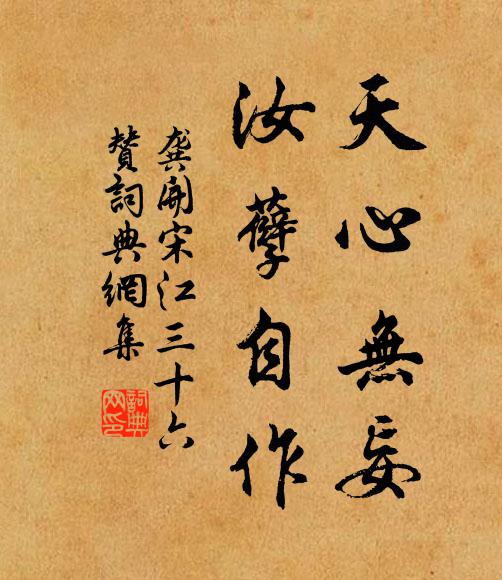 天心無妄
汝孽自作
龔開宋江三十六
贊詞典網集
詞典网印